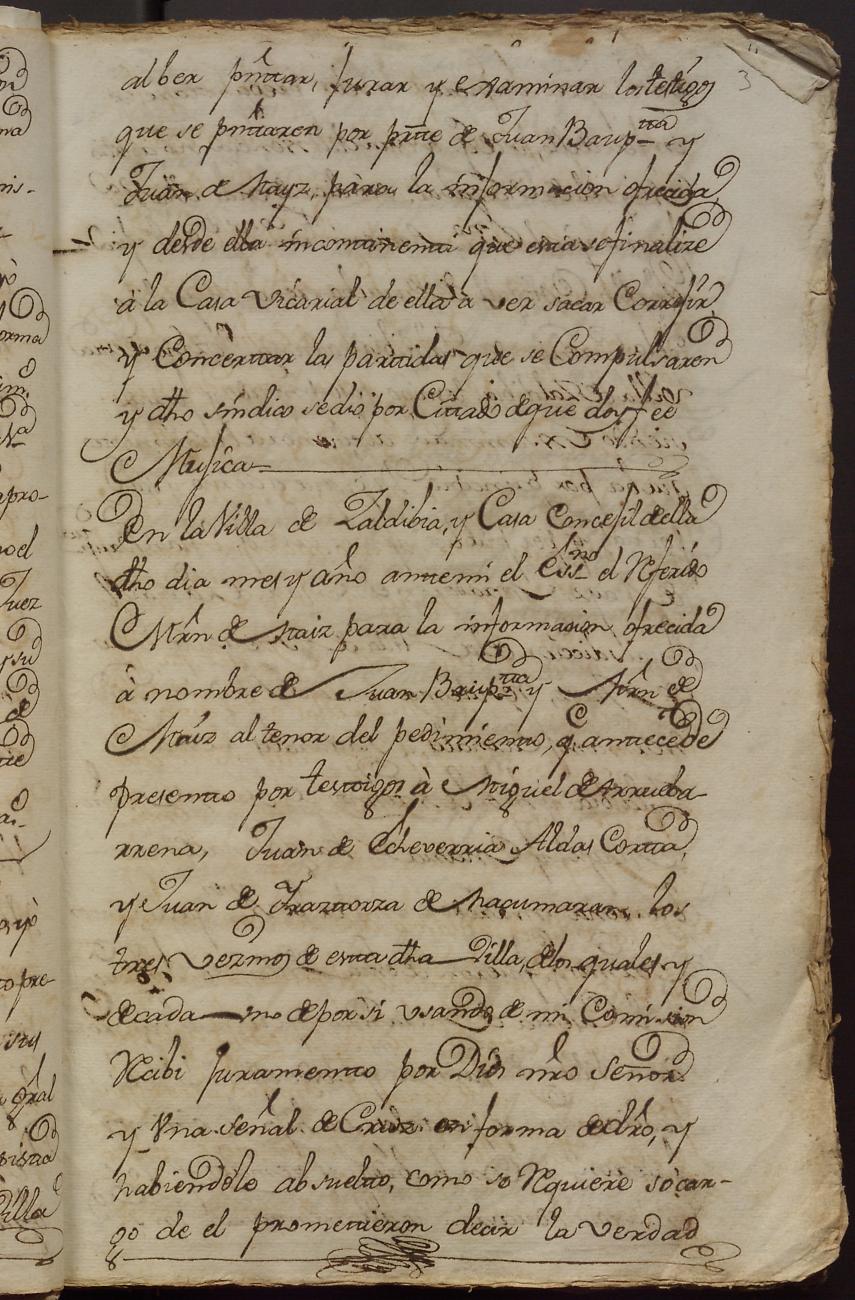 al ber pñtar, jurar y examinar los testigos
que se pñtaren por prte de Juan Bauptta y
Juan de Mayz, para la informacion ofrecida
y desde ella incontinenti que esta se finalize
à la Casa Vicarial de ella à ver sacar Correjir,
y Concertar las partidas que se Compulsaren
y dho sindico se dio por Cittado de que doy fee
Mujica
En la Villa de Zaldibia, y Casa Concejil de ella
dho dia mes y año ante mi el Essno el Referido
Mrn de Maiz para la informacion ofrecida
à nombre de Juan Bauptta y Mrn de
Maiz al tenor del pedimiento, q. antecede
presento por testigos à Miguel de Arruba-
rrena, Juan de Echeverria Aldas Cortta,
y Juan de Yraztorza de Nacumaran, los
tres vezinos de esta dha Villa, de los quales y
de cada uno de por si usando de mi Comision
Recibi Juramento por Dios nro Señor
y Una señal de Cruz en forma de dro, y
habiendolo absuelto, como se Requiere so car-
go de el prometieron decir la verdad
3